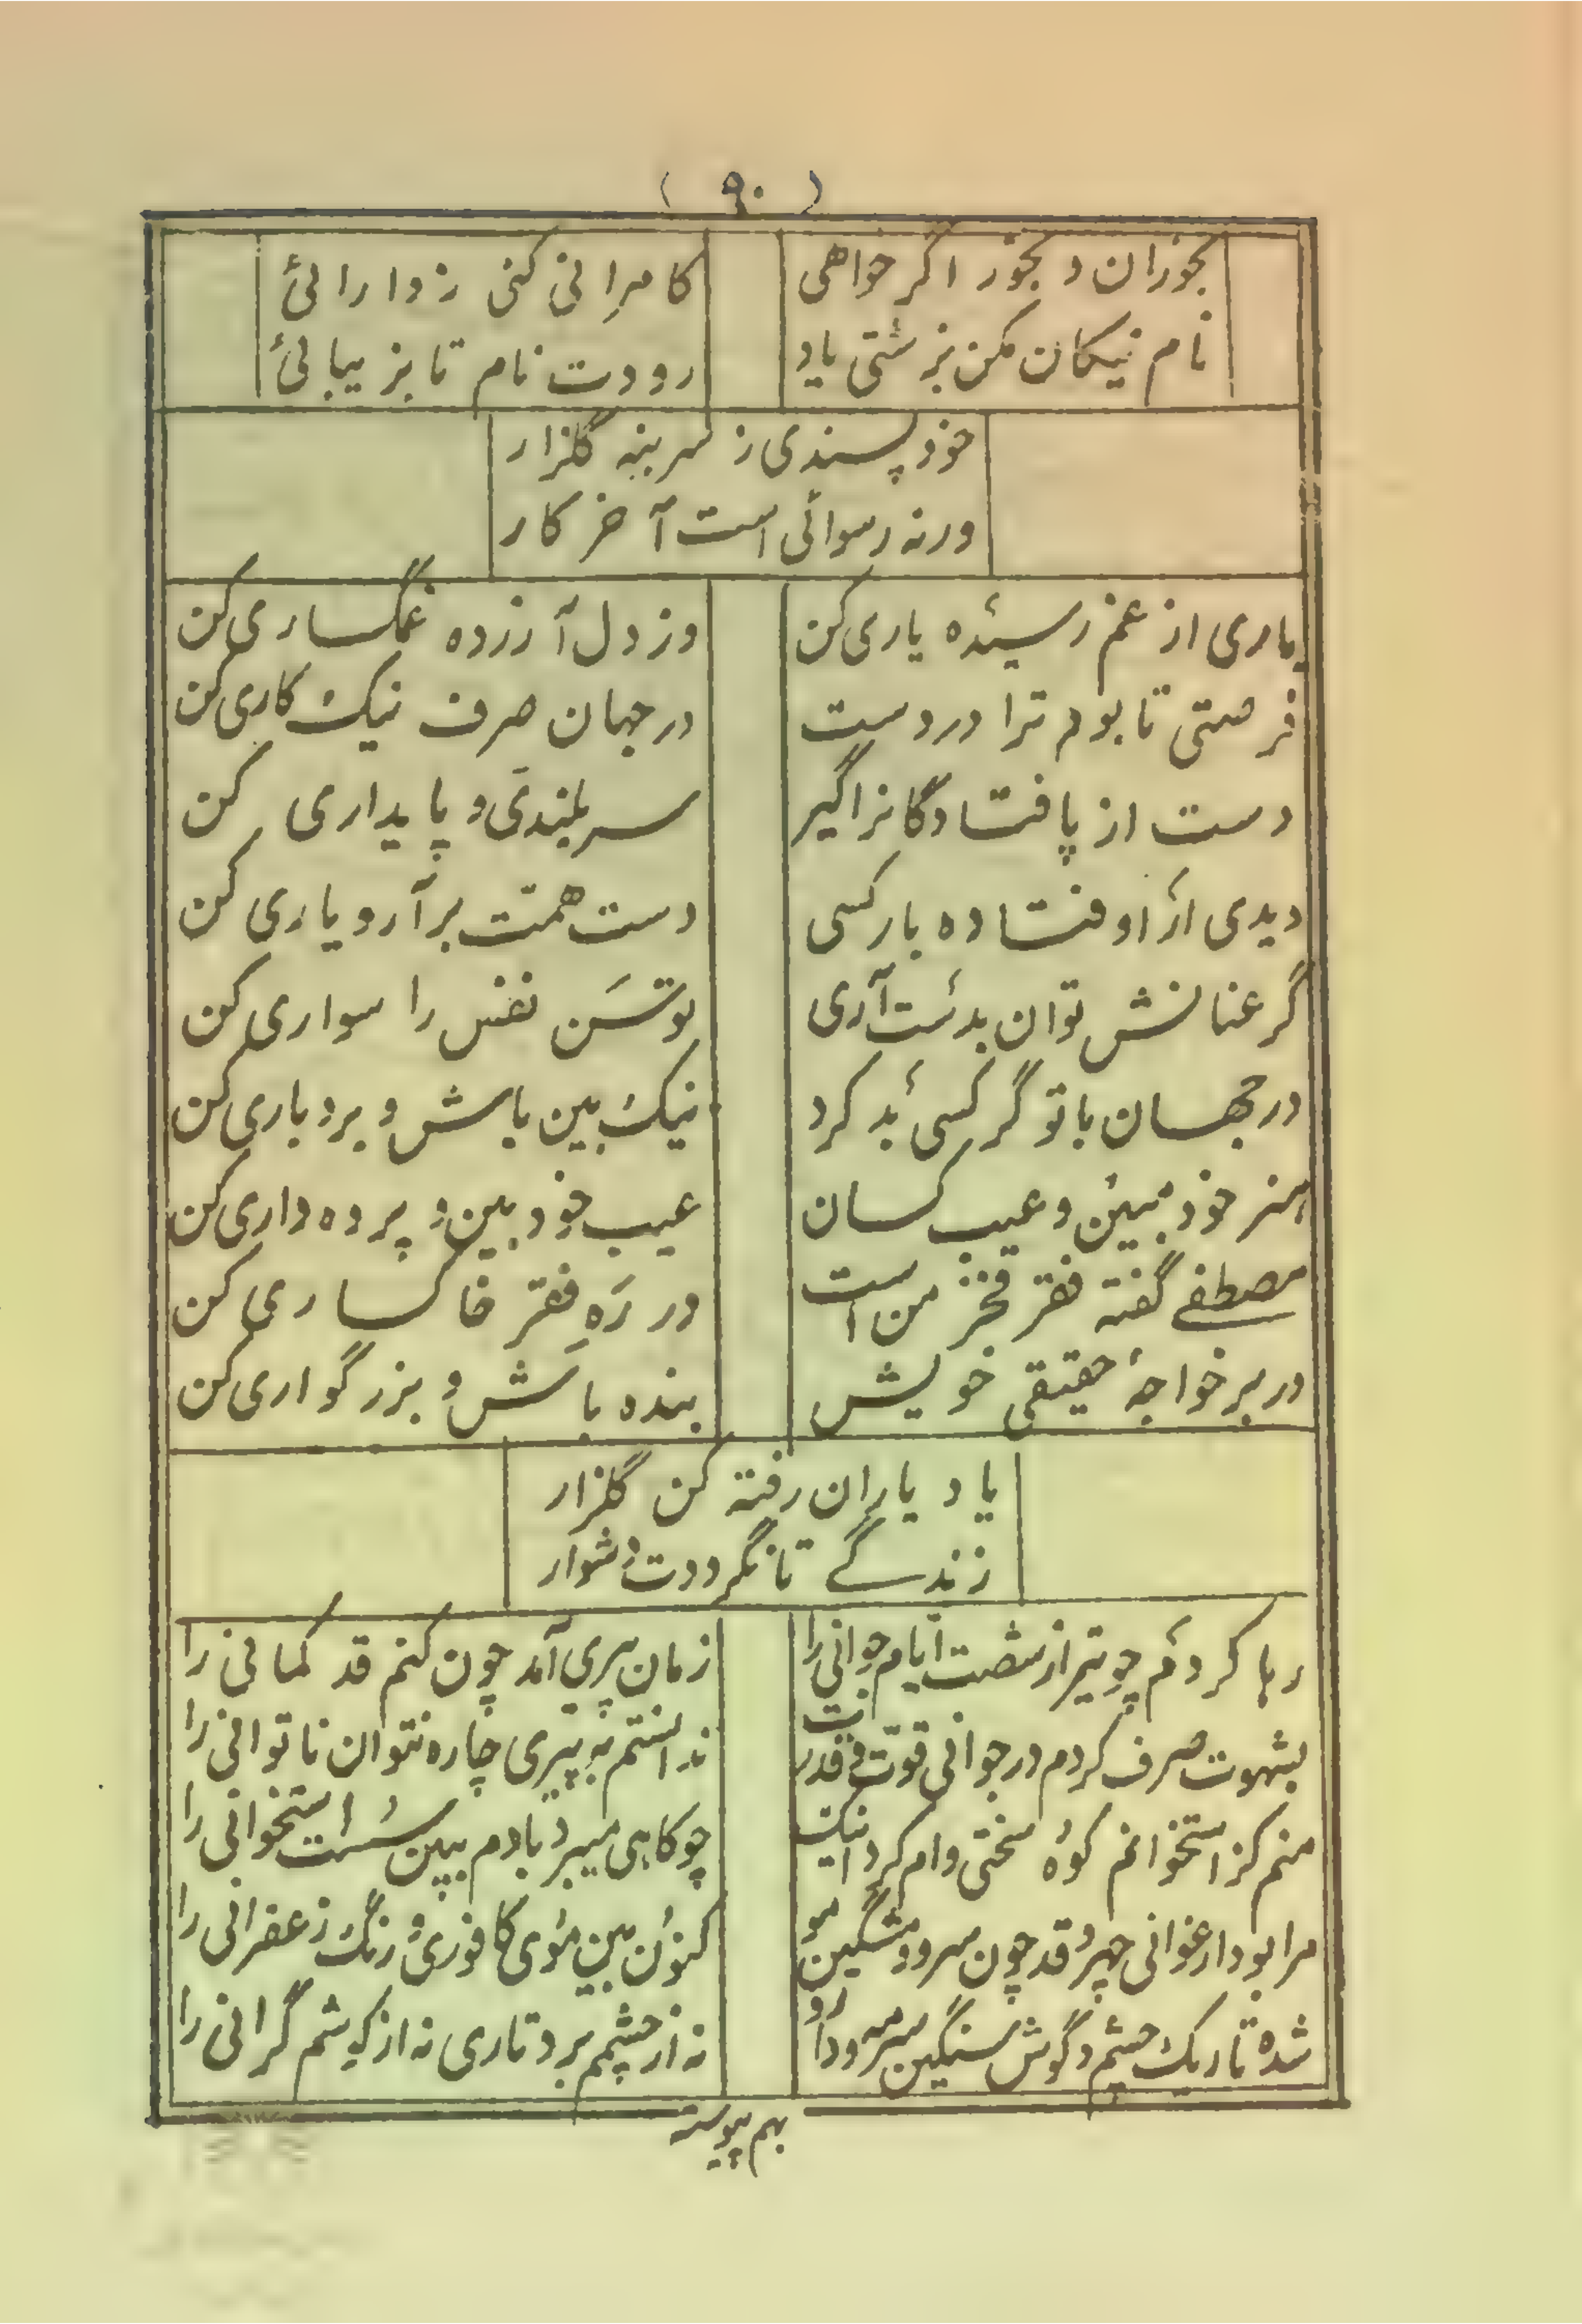 (۹۰)
بخوران و بخور اگر خواهی کامرانی کنی ز دارائی
نام نیکان مکن بزشتی یاد رودت نام تا بزیبائی
خود پسندی ز سر بنه گلزار
ورنه رسوائی است آخر کار
یاری از غم رسیده یاری کن وز دل آزرده غمگساری کن
فرصتی تا بود ترا در دست در جهان صرف نیک کاری کن
دست از پا فتادگانرا گیر سربلندی و پایداری کن
دیدی از اوفتاده بار کسی دست همت بر آر و یاری کن
گر عنانش توان بدست آری توسن نفس را سواری کن
در جهان با تو گر کسی بد کرد نیک بین باش و بردباری کن
هنر خود مبین و عیب کسان عیب خود بین و پرده داری کن
مصطفے گفته فقر فخر من است در ره فقر خاکساری کن
در بر خواجهٔ حقیقی خویش بنده باش و بزرگواری کن
یاد یاران رفته کن گلزار
زندگے تا نگرددت دشوار
رها کردم چو تیر از شصت ایام جوانی را زمان پیری آمد چون کنم قد کمانی را
بشهوت صرف کردم در جوانی قوت و قدرت ندانستم به پیری چاره نتوان ناتوانی را
منم کز استخوانم کوه سختی وام کرد اینک چو کاهی میبرد بادم ببین سست استخوانی را
مرا بود ارغوانی چهر و قد چون سرو و مشگین مو کنون بین موی کافوری و رنگ زعفرانی را
شده تاریک چشم و گوش سنگین سرمه و دارو نه از چشمم برد تاری نه از گوشم گرانی را
بهم پیوسته